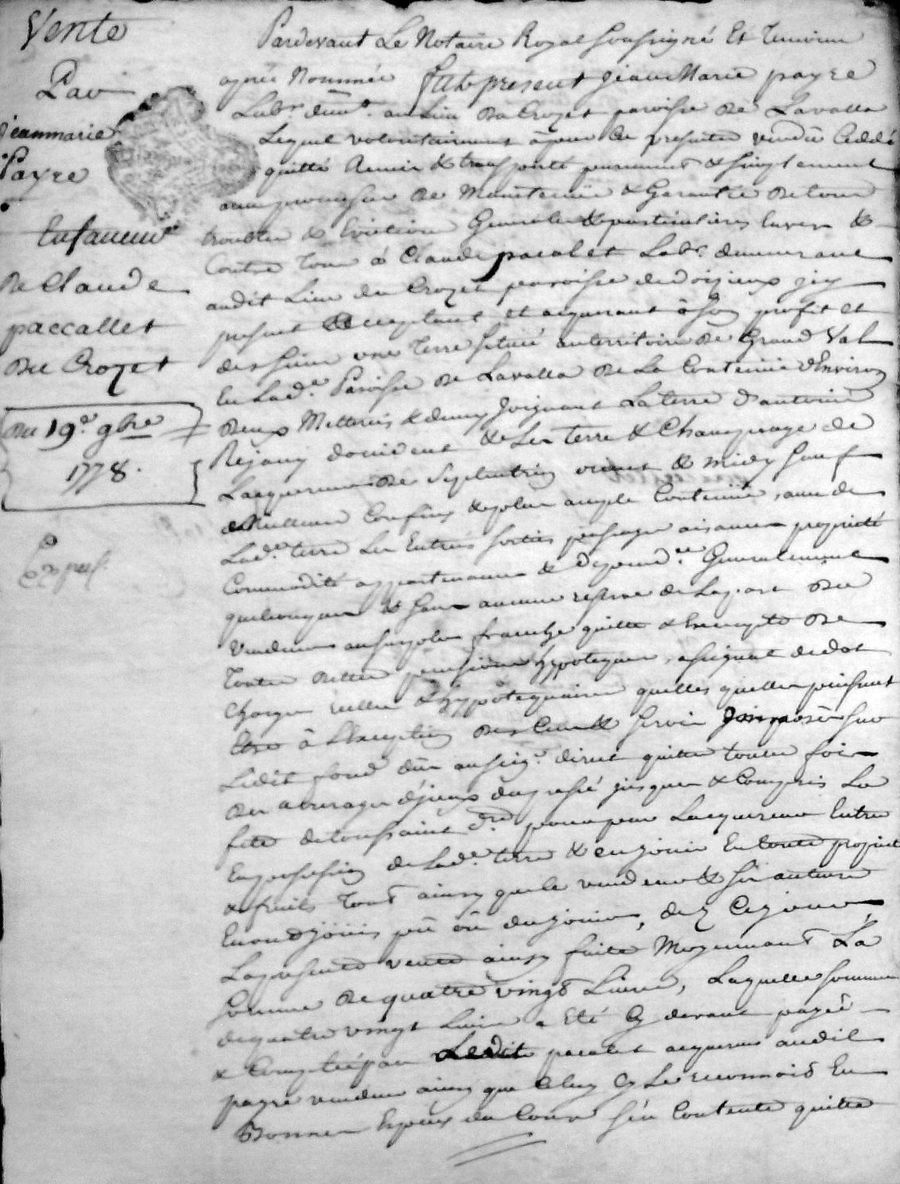 Vente
Par
Jeanmarie
Payre
En faveur
de Claude
paccallet
du Crozet
du 19e. 9bre
1778.
Exped
Pardevant Le Notaire Royal soussigné Et Temoins
après Nommés fut present Jean Marie payre
Labr. demt. au Lieu du Crozet paroisse de Lavalla
Lequel volontairement a par Ces presentes vendu Cedé
quitté Remis & transporté purement & simplement
avec promesse de Maintenir & Garantir de tous
troubles & Evictions Generales & particulieres Envers &
Contre Tous à Claude pacalet Labr. demeurant
audit Lieu du Crozet paroisse de doizieux icy
present acceptant et acquerant à son profit et
des siens une Terre située au territoire de Grand Val
En Lade. Paroisse de Lavalla de La Contenue d'Environ
deux Metterées & demy Joignant La terre d'antoine
Rejany d'occident & Les terre & Champeage de
Lacquereur de Septentrion orient & midy sauf
de meilleurs Confins & plus ample Contenue, avec de
Lade. terre Les Entrées sorties passages aisances proprieté
Commodité appartenances & dependces. Generalement
quelconques & sans aucune reserve de La part du
vendeur au surplus franche quitte & Exempte de
Toutes dettes pensions hypoteques, assignat de dot
charges réelles & hypotequaires quelles quelles puissent
Etre à L'Exception des Cens & servis Imposés sur
Ledit fond dûs au seigr. direct quittes toutes fois
des arrerages d'iceux du passé jusques & Compris La
fête de toussaint dre. pour par Lacquereur Entrer
En possession de Lade. terre & en jouir En toute proprieté
& fruits Tout ainsy que le vendeur & ses auteurs
En ont joüis pû ou dû joüir, dez Cejour
La presente vente ainsy faite Moyennant La
somme de quatre vingt Livres, Laquelle somme
de quatre vingt Livres a Eté Cy devant payée
& Comptée par Ledit pacalet acquereur audit
payre vendeur ainsy que Celuy Cy Le reconnoit En
Bonnes Especes du Cours s'en Contente quitte